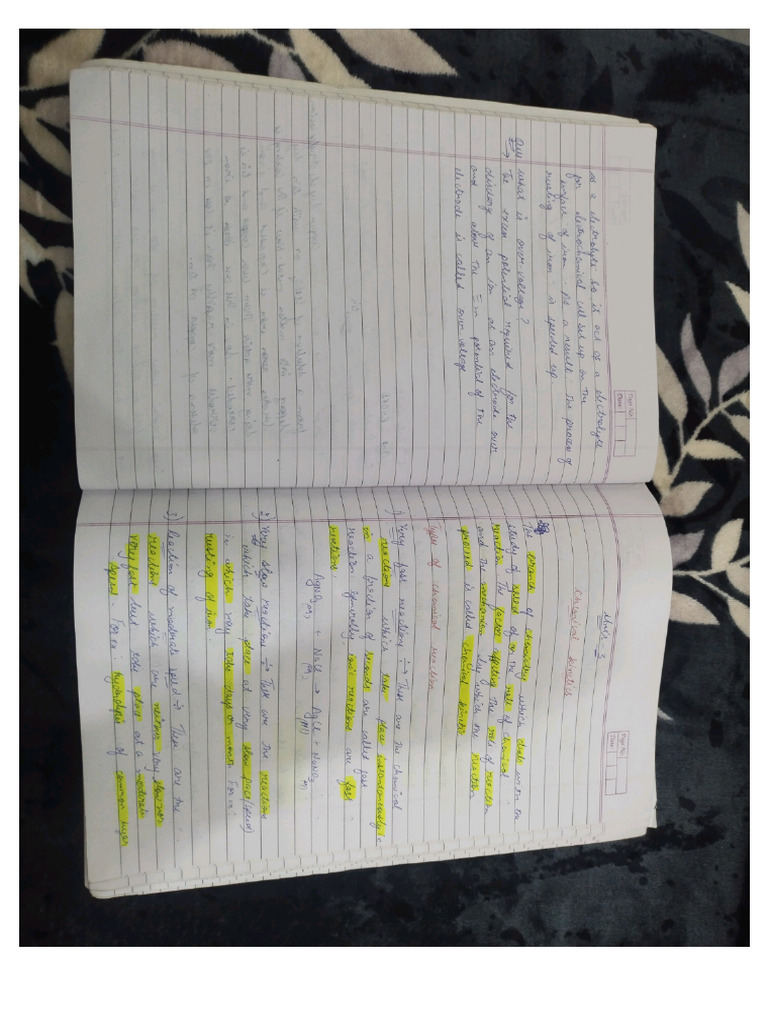 as a electrolyte so it act as a electrolyte
for electrochemical cell set up on the
surface of iron. As a result the process of
rusting of iron is speeded up
Que what is over voltage?
→ The excess potential required for the
discharge of an ion at an electrode over
and above the potential of the
electrode is called over voltage
Page No.
Date
Unit - 3
Chemical kinetics
Page No.
Date
The branch of chemistry which deals with the
study of speed or on the rate of chemical
reaction. The factors affecting the rate of reaction
and the mechanism by which the reaction
proceed is called chemical kinetics
Types of chemical reaction
1) Very fast reactions ÷→ These are the chemical
reactions which take place instantaneously i.e.
in a fraction of seconds are called fast
reaction. Generally ionic reactions are fast
reactions.
AgNO3 (aq) + NaCl (aq) → AgCl (s) + NaNO3 (aq)
2) Very slow reactions ÷→ These are the reactions
which take place at very slow pace (speed)
i.e. which may take days or month For ex:
rusting of iron.
3) Reaction of moderate speed → These are the
reactions which are neither very slow nor
very fast but take place at a moderate
speed. For ex: hydrolysis of common sugar